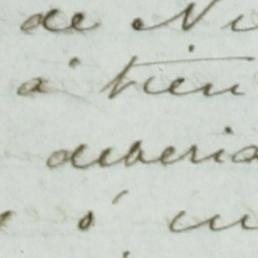 de Ni
a' bien
deberia
ó in